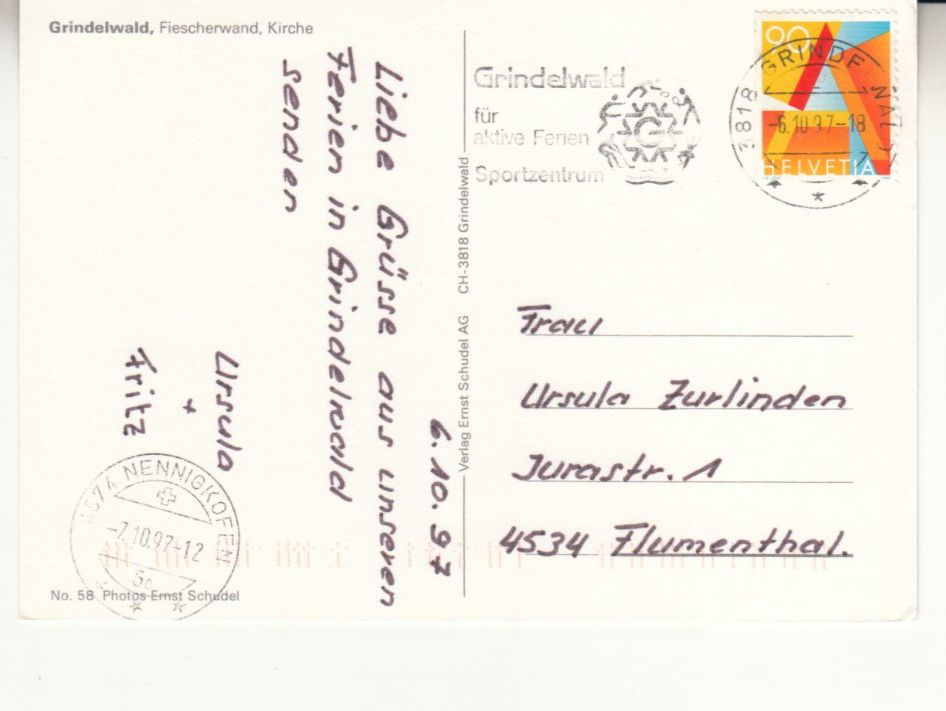 Grindelwald, Fiescherwand, Kirche
6.10.97
Liebe Grüsse aus unseren
Ferien in Grindelwald
senden
Ursula
+
Fritz
4574 NENNIGKOFEN
-7.10.97-12
No. 58 Photos Ernst Schudel
Verlag Ernst Schudel AG CH-3818 Grindelwald
Grindelwald
für
aktive Ferien
Sportzentrum
G
3818 GRINDELWALD
-6.10.97-18
90
A
HELVETIA
Frau
Ursula Zurlinden
Jurastr. 1
4534 Flumenthal.